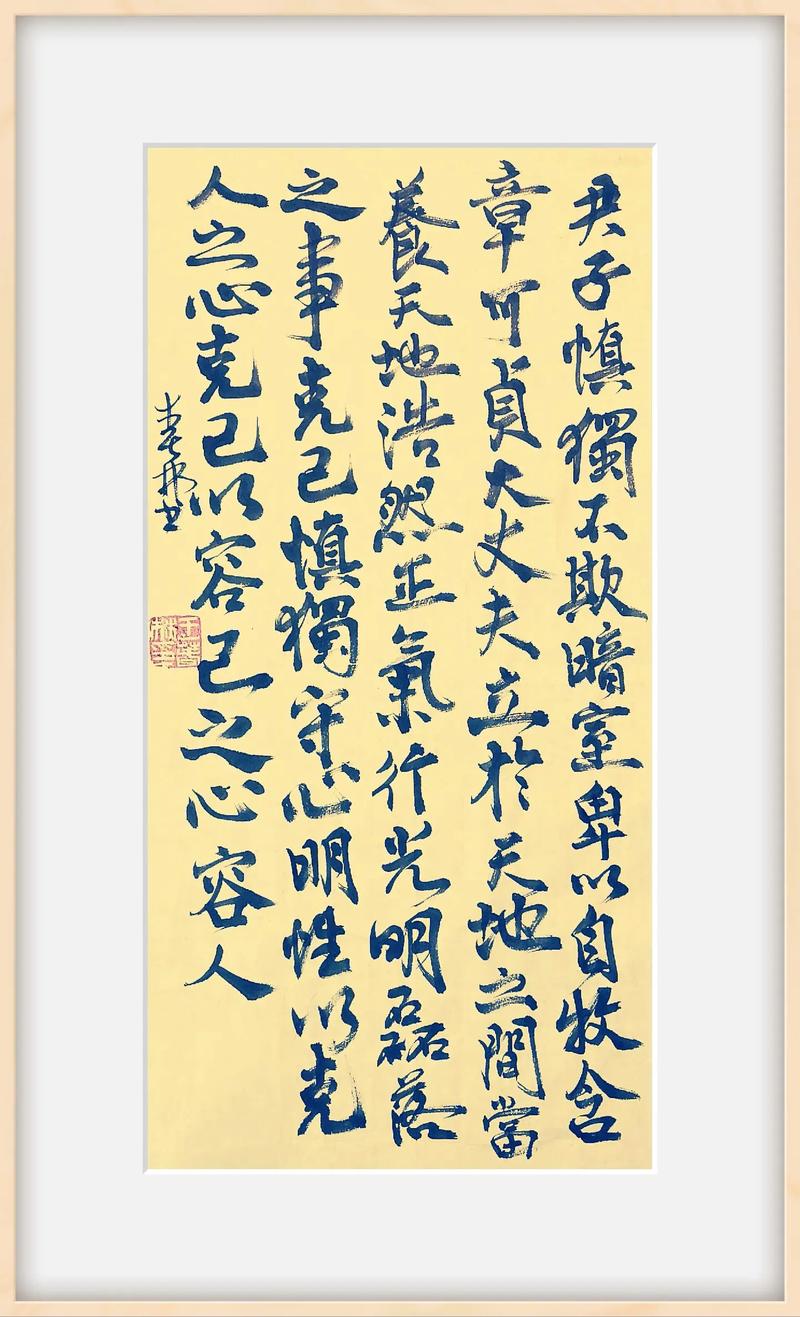 君子慎獨不欺暗室卑以自牧含
章可貞大丈夫立於天地之間當
養天地浩然正氣行光明磊落
之事克己慎獨守心明性以克
人之心克己以容己之心容人
書